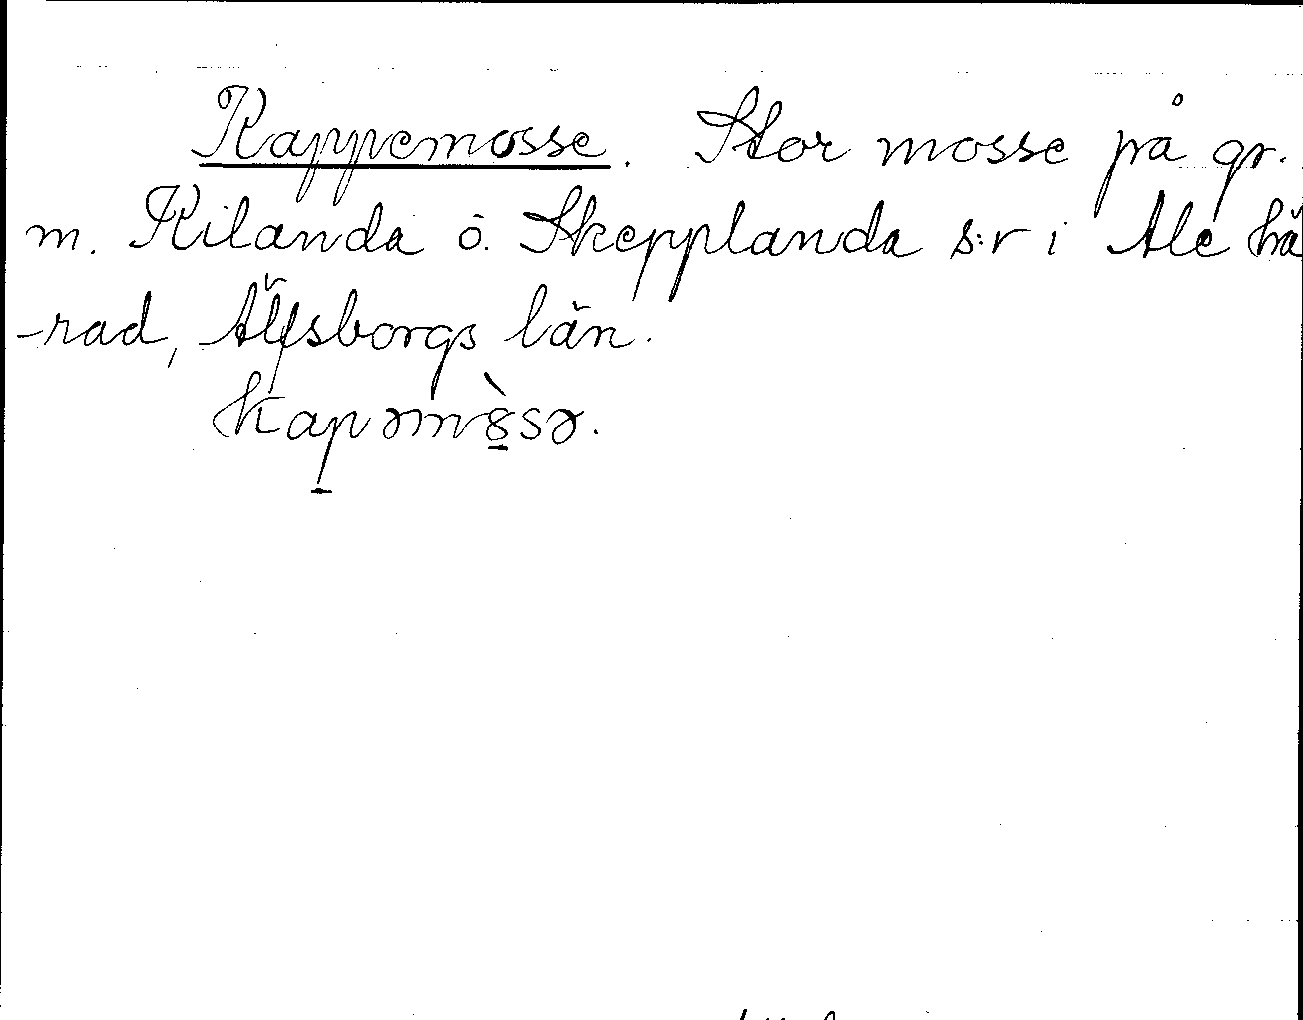 Kappemosse. Stor mosse på gr.
m. Kilanda o. Skepplanda s:r i Ale hä
-rad, Älfsborgs län.
kapəmòsə.